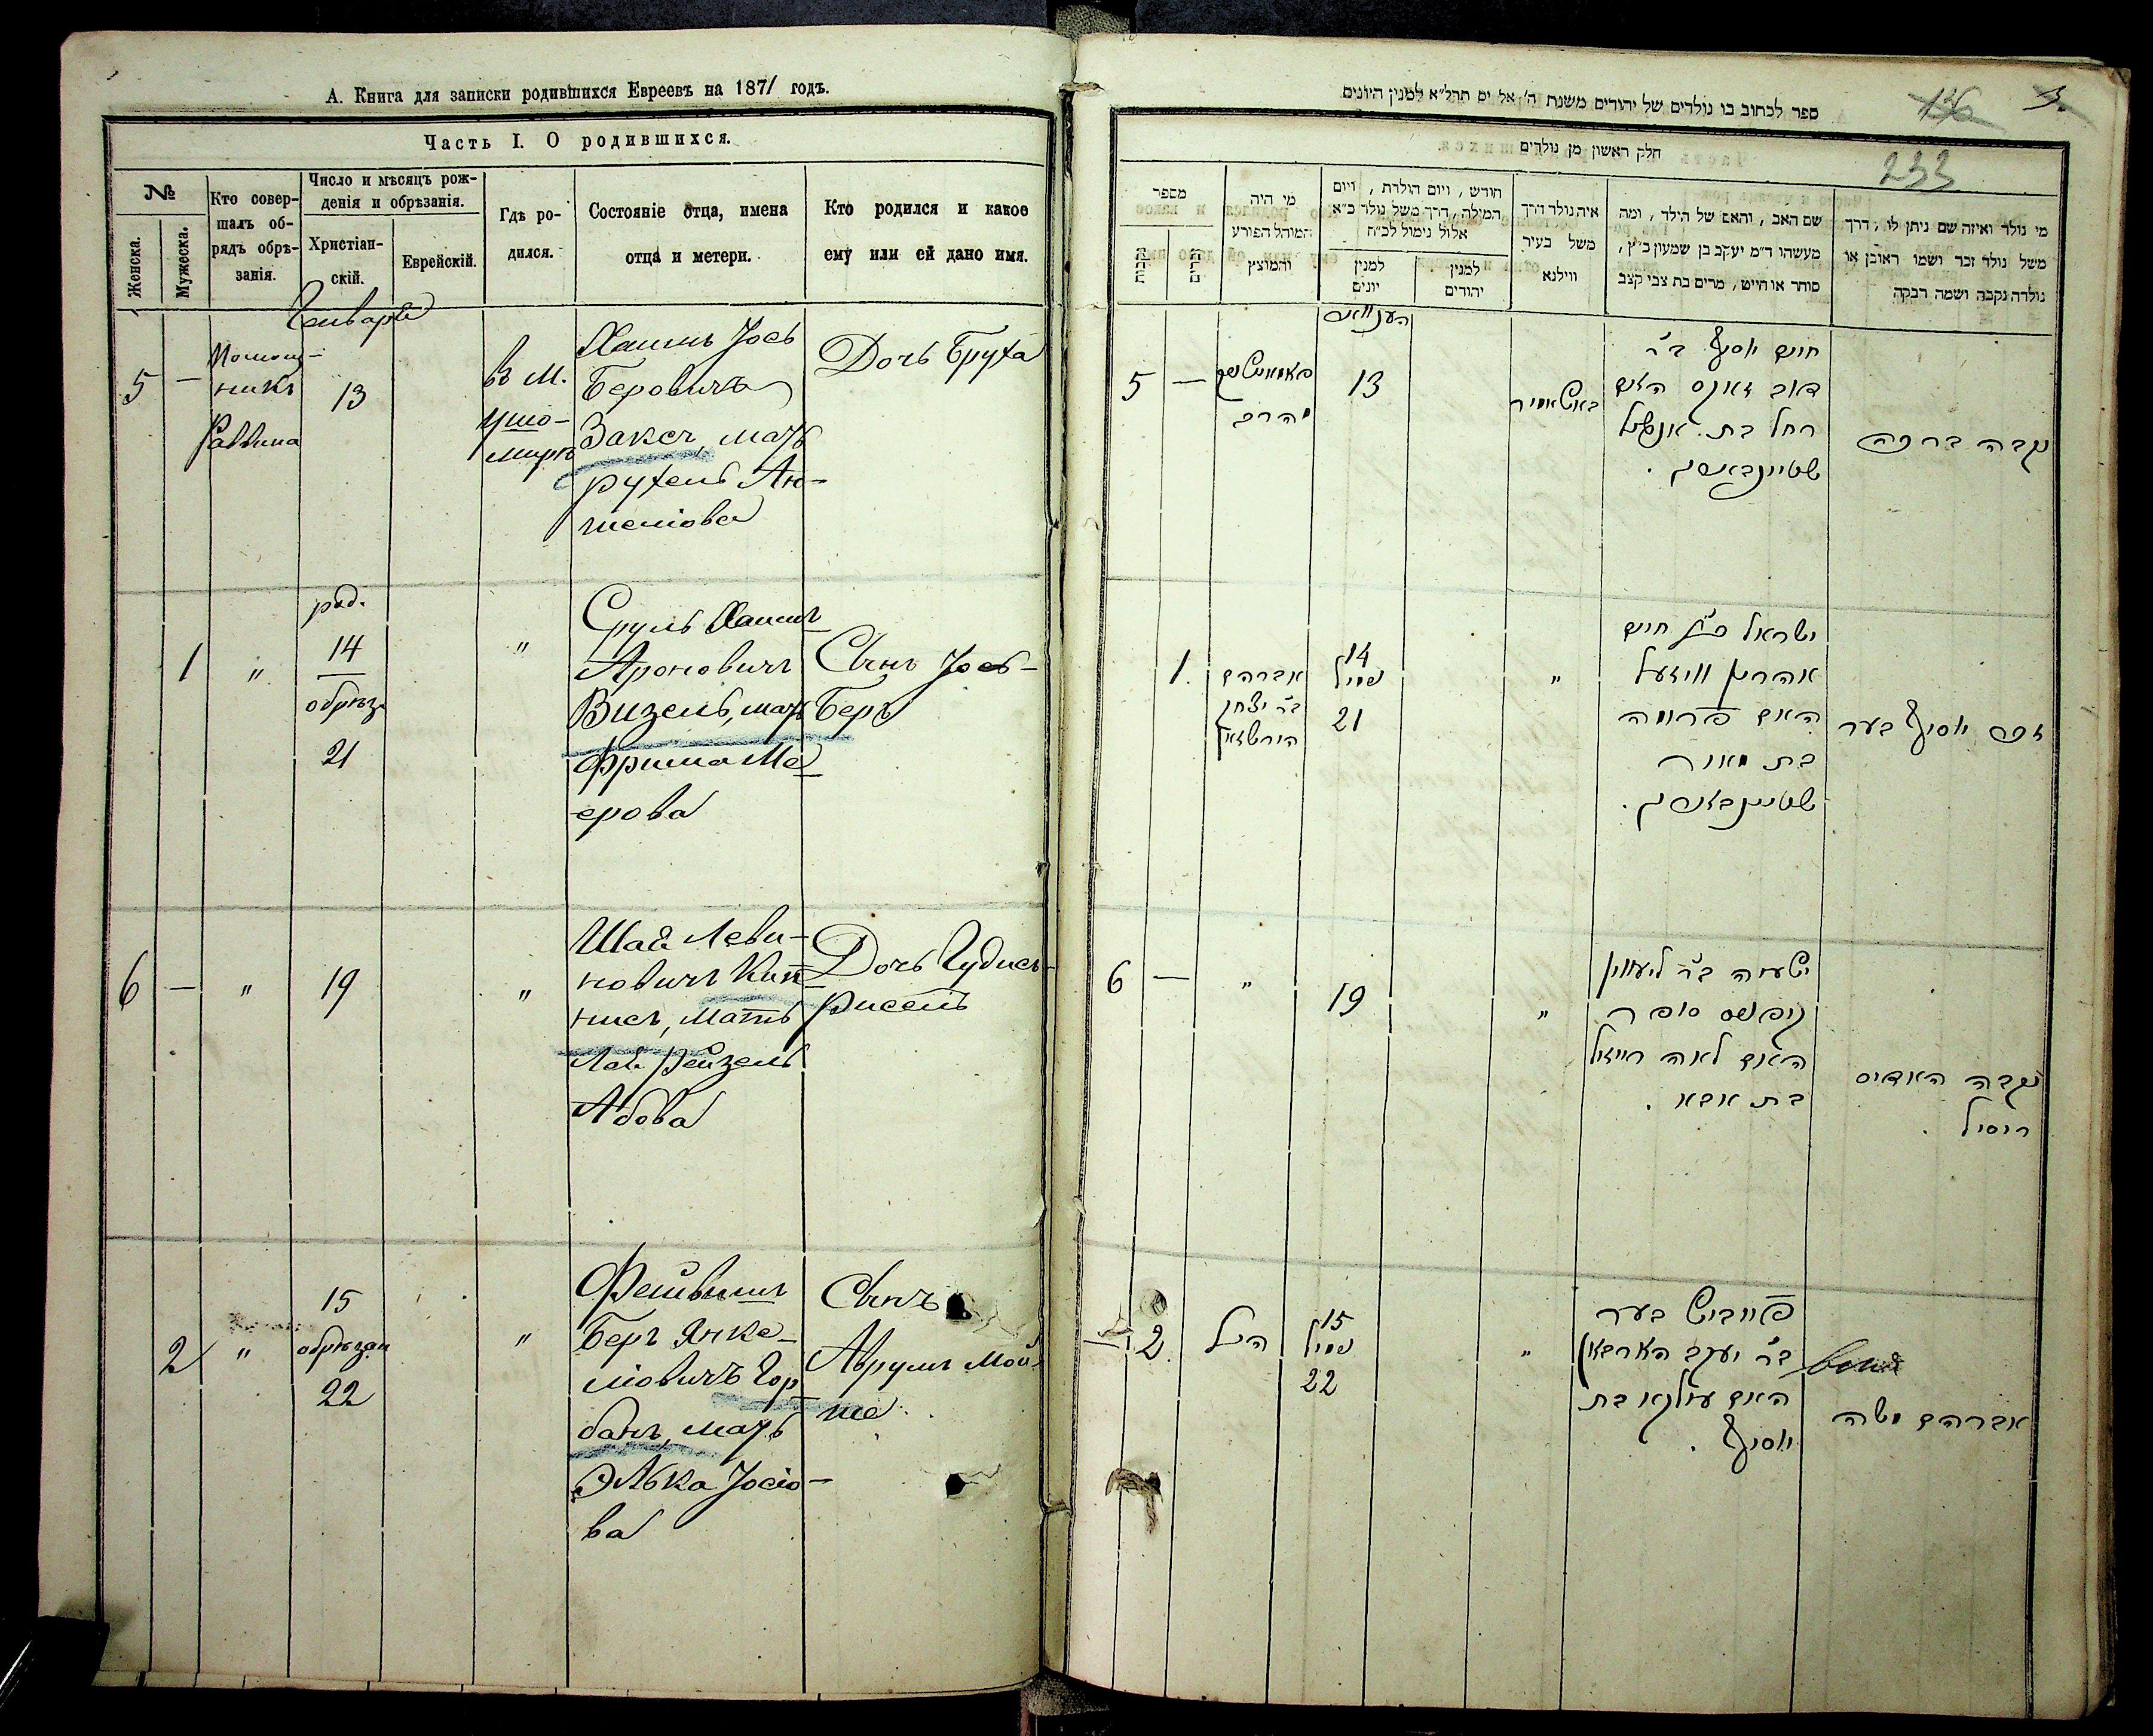 А. Книга для записки родившихся Евреевъ на 1871 годъ.
Часть I. О родившихся.
№
Женска.
Мужеска.
Кто совер-
шалъ об-
рядъ обрѣ-
занія.
Число и мѣсяцъ рож-
денія и обрѣзанія.
Христіан-
скій.
Еврейскій.
Гдѣ ро-
дился.
Состояніе отца, имена
отца и метери.
Кто родился и какое
ему или ей дано имя.
Генваря
5
—
Помощ-
никъ
Раввина
13
въ м.
Ушо-
мирѣ
Хаимъ Іось
Беровичъ
Заксъ, мать
Рухель Ан-
шеліова
Дочь Бруха
1
"
род.
14
обрѣз.
21
"
Сруль Хаимъ
Ароновичъ
Визель, мать
Фрима Ме-
ерова
Сынъ Іось-
Беръ
6
—
"
19
"
Шая Леви-
новичъ Кип-
нисъ, мать
Лея Рейзель
Абова
Дочь Гудись-
Рисель
2
"
15
обрѣзан
22
"
Фейвишъ
Беръ Янке-
ліовичъ Гор-
банъ, мать
Элька Іосіо-
ва
Сынъ
Аврумъ Мой-
ше
ספר לכתוב בו נולדים של יהודים משנת ה' אל יס תרל״א למנין היונים
136
3.
233
חלק ראשון מן נולדים
מספר
נקבות
זכרים
מי היה
המוהל הפורע
והמוצץ
חודש, ויום הולדת, ויום
המילה, דרך משל נולד כ״א
אלול נימול לכ״ח
למנין
יונים
למנין
יהודים
איה נולד דרך
משל בעיר
ווילנא
שם האב, והאם של הילד, ומה
מעשהו ד״מ יעקב בן שמעון כ״ץ,
סוחר או חייט, מרים בת צבי קצב
מי נולד ואיזה שם ניתן לו, דרך
משל נולד זכר ושמו ראובן או
נולדה נקבה ושמה רבקה
5
—
הרב
13
חיים יוסף ב״ר
דוב זאקס האם
רחל בת אנשיל
נקבה ברכה
1.
אברהם
ב״ר יצחק
14
נימול
21
"
ישראל חיים
אהרון וויזעל
האם פרימה
בת מאיר
זכר יוסף בער
6
—
"
19
"
ישעיה ב״ר
קיפניס סופר
האם לאה רייזיל
בת אבא.
נקבה האדיס
ריסיל.
— 2.
הנ״ל
15
נימול
22
"
פייביש בער
ב״ר יעקב הארבאן
האם עולקא בת
יוסף.
אברהם משה